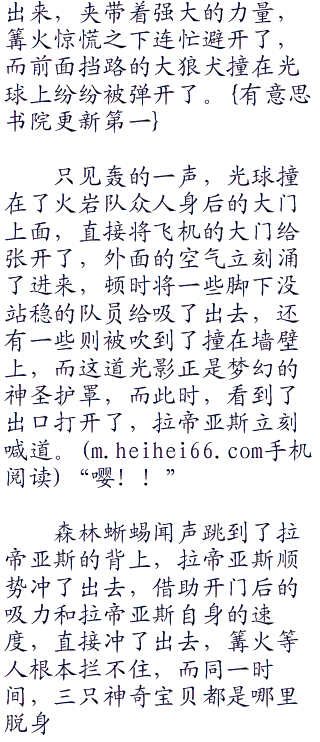 出来，夹带着强大的力量，
篝火惊慌之下连忙避开了，
而前面挡路的大狼犬撞在光
球上纷纷被弹开了。{有意思
书院更新第一}
只见轰的一声，光球撞
在了火岩队众人身后的大门
上面，直接将飞机的大门给
张开了，外面的空气立刻涌
了进来，顿时将一些脚下没
站稳的队员给吸了出去，还
有一些则被吹到了撞在墙壁
上，而这道光影正是梦幻的
神圣护罩，而此时，看到了
出口打开了，拉帝亚斯立刻
喊道。(m.heihei66.com手机
阅读)“嘤！！”
森林蜥蜴闻声跳到了拉
帝亚斯的背上，拉帝亚斯顺
势冲了出去，借助开门后的
吸力和拉帝亚斯自身的速
度，直接冲了出去，篝火等
人根本拦不住，而同一时
间，三只神奇宝贝都是哪里
脱身